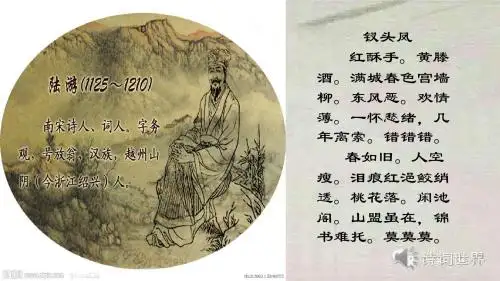 陆游(1125～1210)
南宋诗人、词人。字务
观，号放翁，汉族，越州山
阴（今浙江绍兴）人。
钗头凤
红酥手。黄滕
酒。满城春色宫墙
柳。东风恶。欢情
薄。一怀愁绪，几
年离索。错错错。
春如旧。人空
瘦。泪痕红浥鲛绡
透。桃花落。闲池
阁。山盟虽在，锦
书难托。莫莫莫。
诗词世界